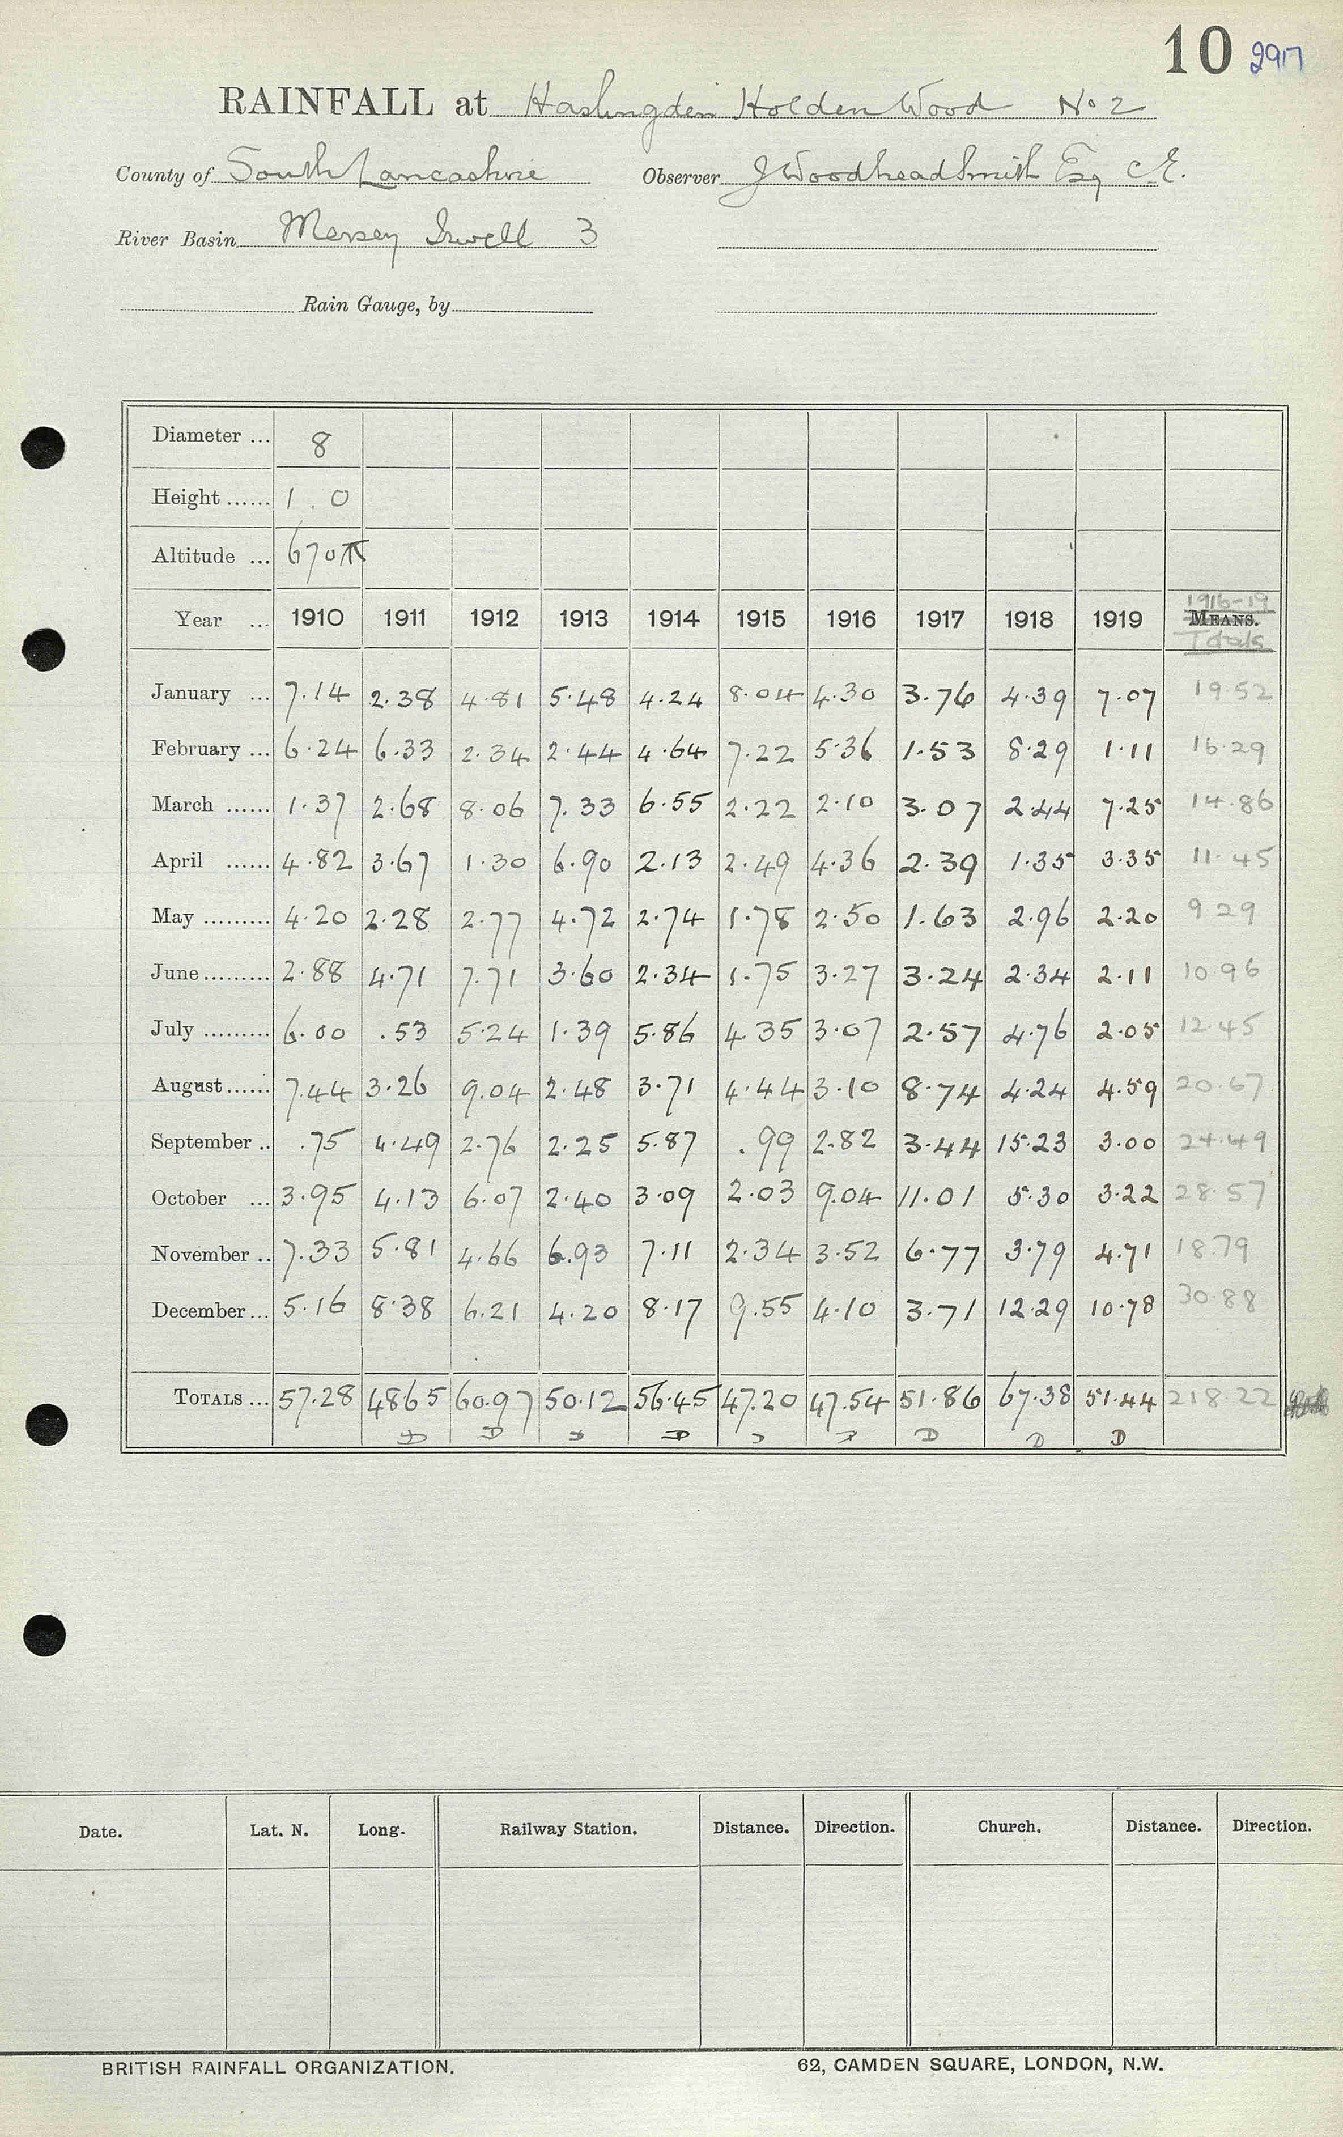 10 2917
RAINFALL at Haslingden Holden Wood No 2
County of South Lancashire Observer J Woodhead Smith Esq C.E.
River Basin Mersey Irwell 3
Rain Gauge, by
Diameter ... 8
Height ...... 1 . 0
Altitude ... 670 ft
1916-19
Year ... 1910 1911 1912 1913 1914 1915 1916 1917 1918 1919 MEANS.
Totals
January ... 7.14 2.38 4.81 5.48 4.24 8.04 4.30 3.76 4.39 7.07 19.52
February ... 6.24 6.33 2.34 2.44 4.64 7.22 5.36 1.53 8.29 1.11 16.29
March ...... 1.37 2.68 8.06 7.33 6.55 2.22 2.10 3.07 2.44 7.25 14.86
April ...... 4.82 3.67 1.30 6.90 2.13 2.49 4.36 2.39 1.35 3.35 11.45
May ......... 4.20 2.28 2.77 4.72 2.74 1.78 2.50 1.63 2.96 2.20 9 29
June ......... 2.88 4.71 7.71 3.60 2.34 1.75 3.27 3.24 2.34 2.11 10.96
July ......... 6.00 .53 5.24 1.39 5.86 4.35 3.07 2.57 4.76 2.05 12.45
August ...... 7.44 3.26 9.04 2.48 3.71 4.44 3.10 8.74 4.24 4.59 20.67
September .. .75 4.49 2.76 2.25 5.87 .99 2.82 3.44 15.23 3.00 24.49
October ... 3.95 4.13 6.07 2.40 3.09 2.03 9.04 11.01 5.30 3.22 28.57
November .. 7.33 5.81 4.66 6.93 7.11 2.34 3.52 6.77 3.79 4.71 18 79
December ... 5.16 8.38 6.21 4.20 8.17 9.55 4.10 3.71 12.29 10.78 30.88
TOTALS ... 57.28 48.65 60.97 50.12 56.45 47.20 47.54 51.86 67.38 51.44 218.22
D D D D D D D D D
Date. Lat. N. Long. Railway Station. Distance. Direction. Church. Distance. Direction.
BRITISH RAINFALL ORGANIZATION. 62, CAMDEN SQUARE, LONDON, N.W.